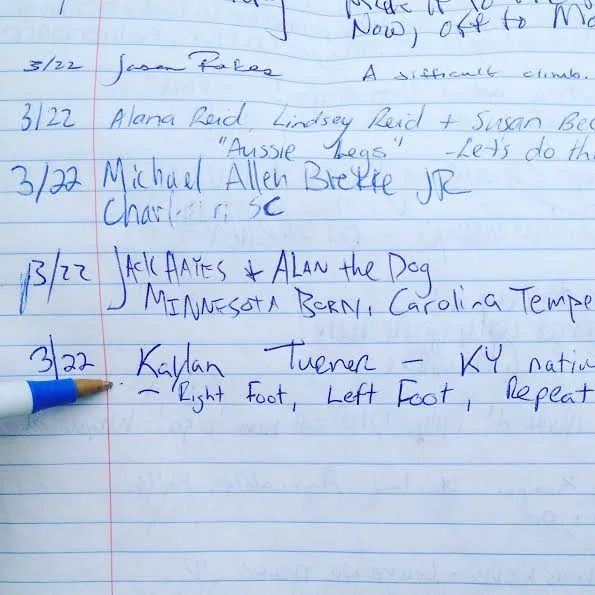 Now, off to Mo
3/22 Jason A difficult climb.
3/22 Alana Reid, Lindsey Reid + Susan Bec
"Aussie Legs" - Let's do th
3/22 Michael Allen Brekke JR
SC
3/22 JACK HAYES & ALAN the Dog
MINNESOTA BORN, Carolina Tempe
3/22 Kaylan Turner - KY nativ
- Right Foot, Left Foot, Repeat